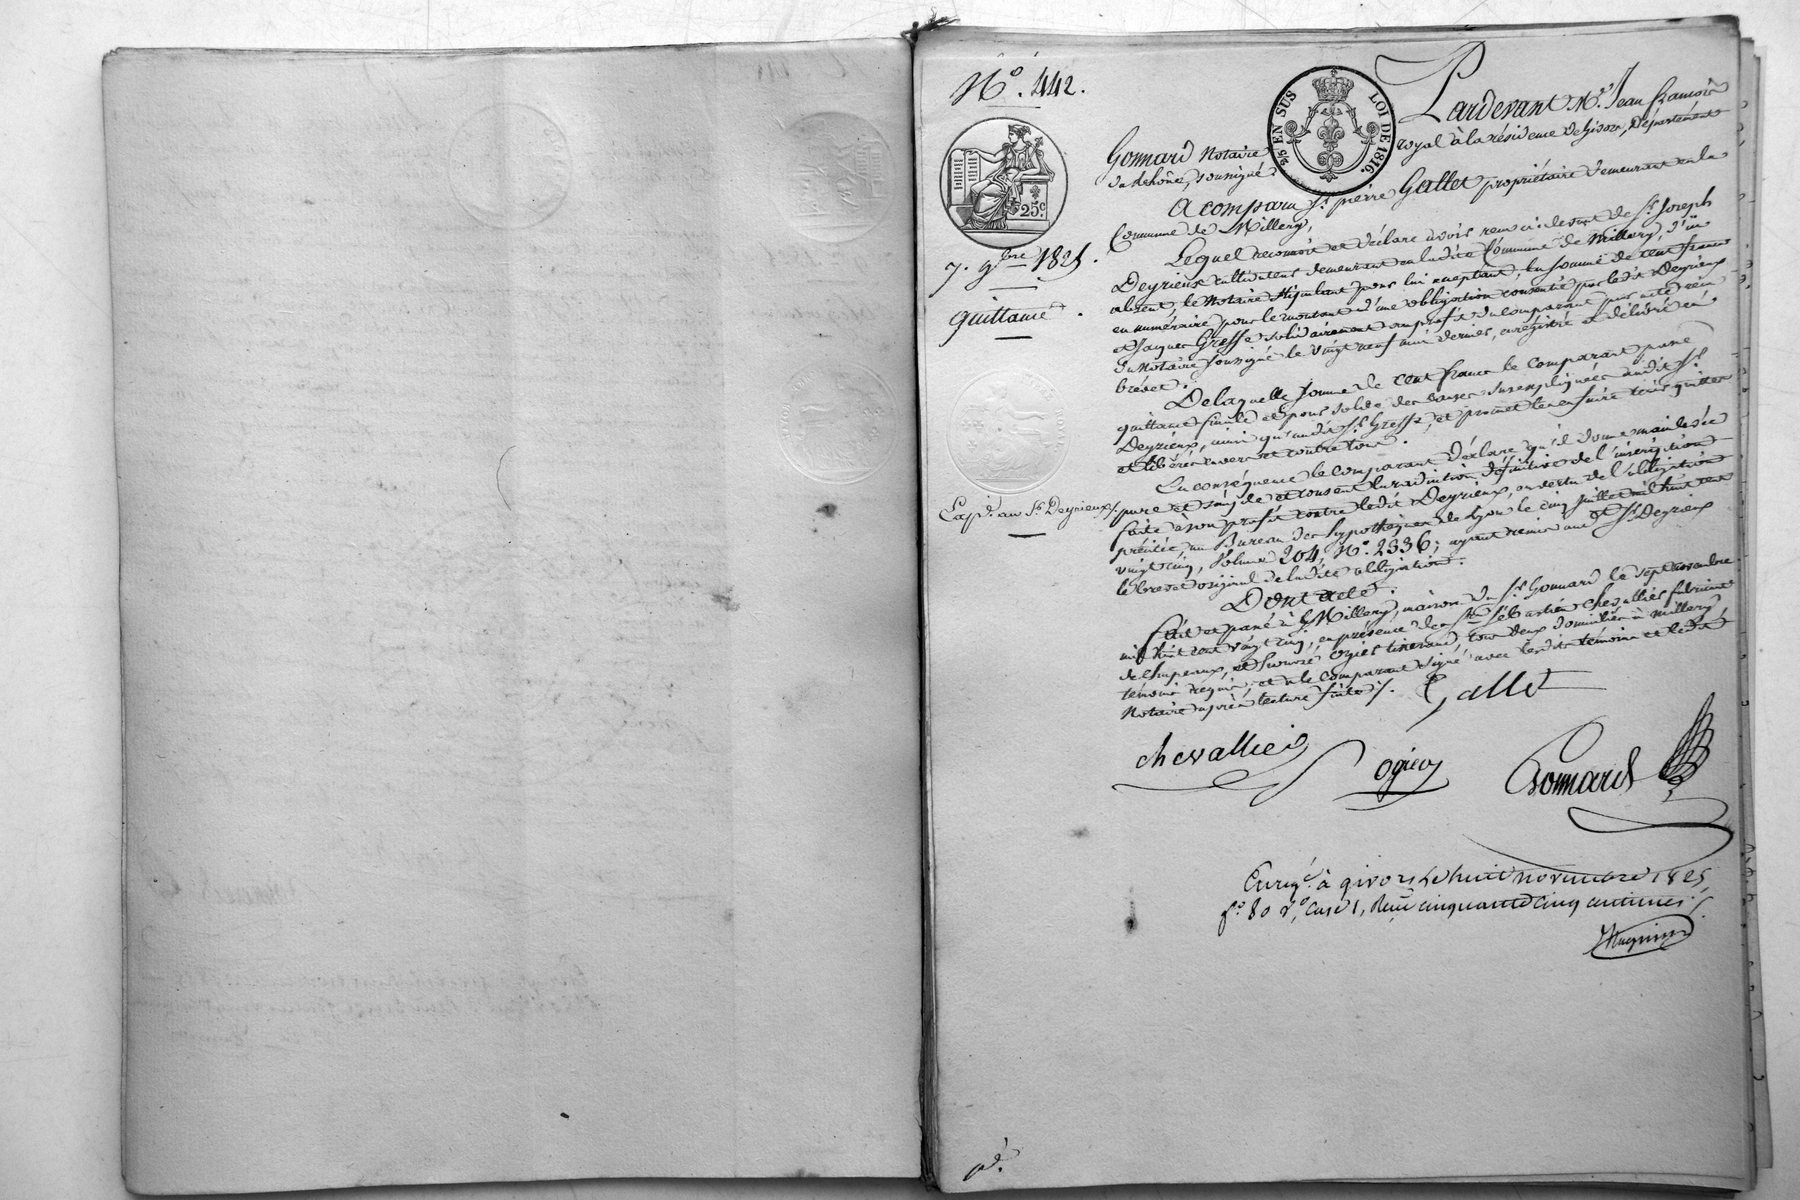 N.º 442.
25 EN SUS
LOI DE 1816.
25.c
7. 9bre 1825.
Quittance.
Exp.on au Sr. Deyrieux
Pardevant Me. Jean françois
Gonnard Notaire royal à la résidence de Givors, Département
du Rhône, soussigné
A comparu Sr. pierre Gallet propriétaire demeurant en la
Commune de Millery,
Lequel reconnoit et déclare avoir reçu ci devant de Sr. Joseph
Deyrieux cultivateur demeurant en ladite Commune de Millery, d'ici
absent, le Notaire stipulant pour lui acceptant, la somme de cent francs
en numéraire, pour le montant d'une obligation consentie par ledit Deyrieux
et Jacques Greffe solidairement au profit du comparant par acte reçu
du Notaire soussigné le vingt neuf mai dernier, enregistré et délivré en
brevet.
De laquelle somme de cent francs le comparant passe
quittance finale et pour solde des causes susexpliquées audit Sr.
Deyrieux, ainsi qu'audit Sr. Greffe, et promet les en faire tenir quittes
et libérés envers et contre tous.
En conséquence le comparant déclare qu'il donne mainlevée
pure et simple et consent la radiation définitive de l'inscription
faite à son profit contre ledit Deyrieux, en vertu de l'obligation
précitée, au Bureau des hypothèques de Lyon le cinq juillet mil huit cent
vingt cinq, Volume 204, N.º 2336; ayant remis au dt. Sr. Deyrieux
le brevet original de ladite obligation.
Dont acte.
Fait et passé à Millery, maison du Sr. Gonnard le sept novembre
mil huit cent vingt cinq, en présence des Srs. Sébastien Chevallier fabricant
de chapeaux, et honoré ogier tisserand, tous deux domiciliés à Millery,
témoins requis, et a le comparant signé avec lesdits témoins et ledit
Notaire après lecture faite ./.
Gallet
chevallier
ogier
Gonnard
Enregé. à givors le huit novembre 1825,
fo. 80 ro, case 1, Reçu cinquante cinq centimes.